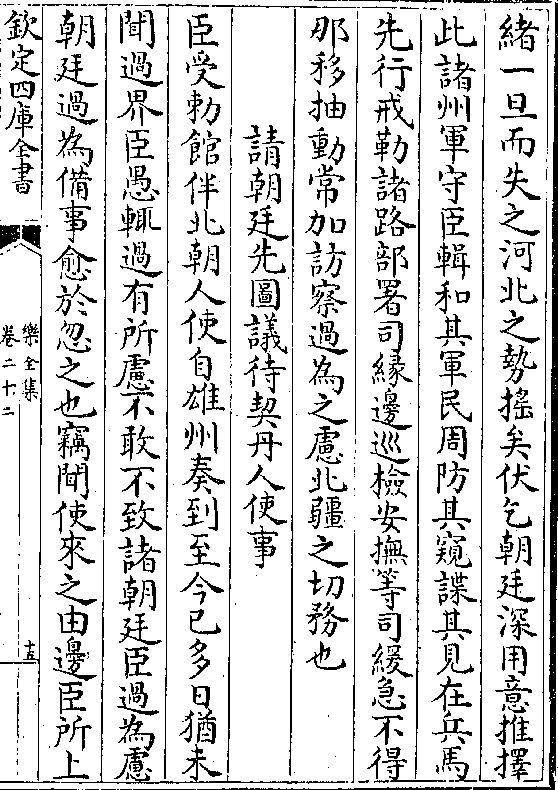 緒一旦而失之河北之勢搖矣伏乞朝廷深用意推擇
此諸州軍守臣輯和其軍民周防其窺諜其見在兵馬
先行戒勒諸路部署司緣邊巡檢安撫等司緩急不得
那移抽動常加訪察過為之慮北疆之切務也
請朝廷先圖議待契丹人使事
臣受勅館伴北朝人使自雄州奏到至今已多日猶未
聞過界臣愚輒過有所慮不敢不致諸朝廷臣過為慮
朝廷過為備事愈於忽之也竊聞使來之由邊臣所上
欽定四庫全書
樂全集
卷二十二
十五